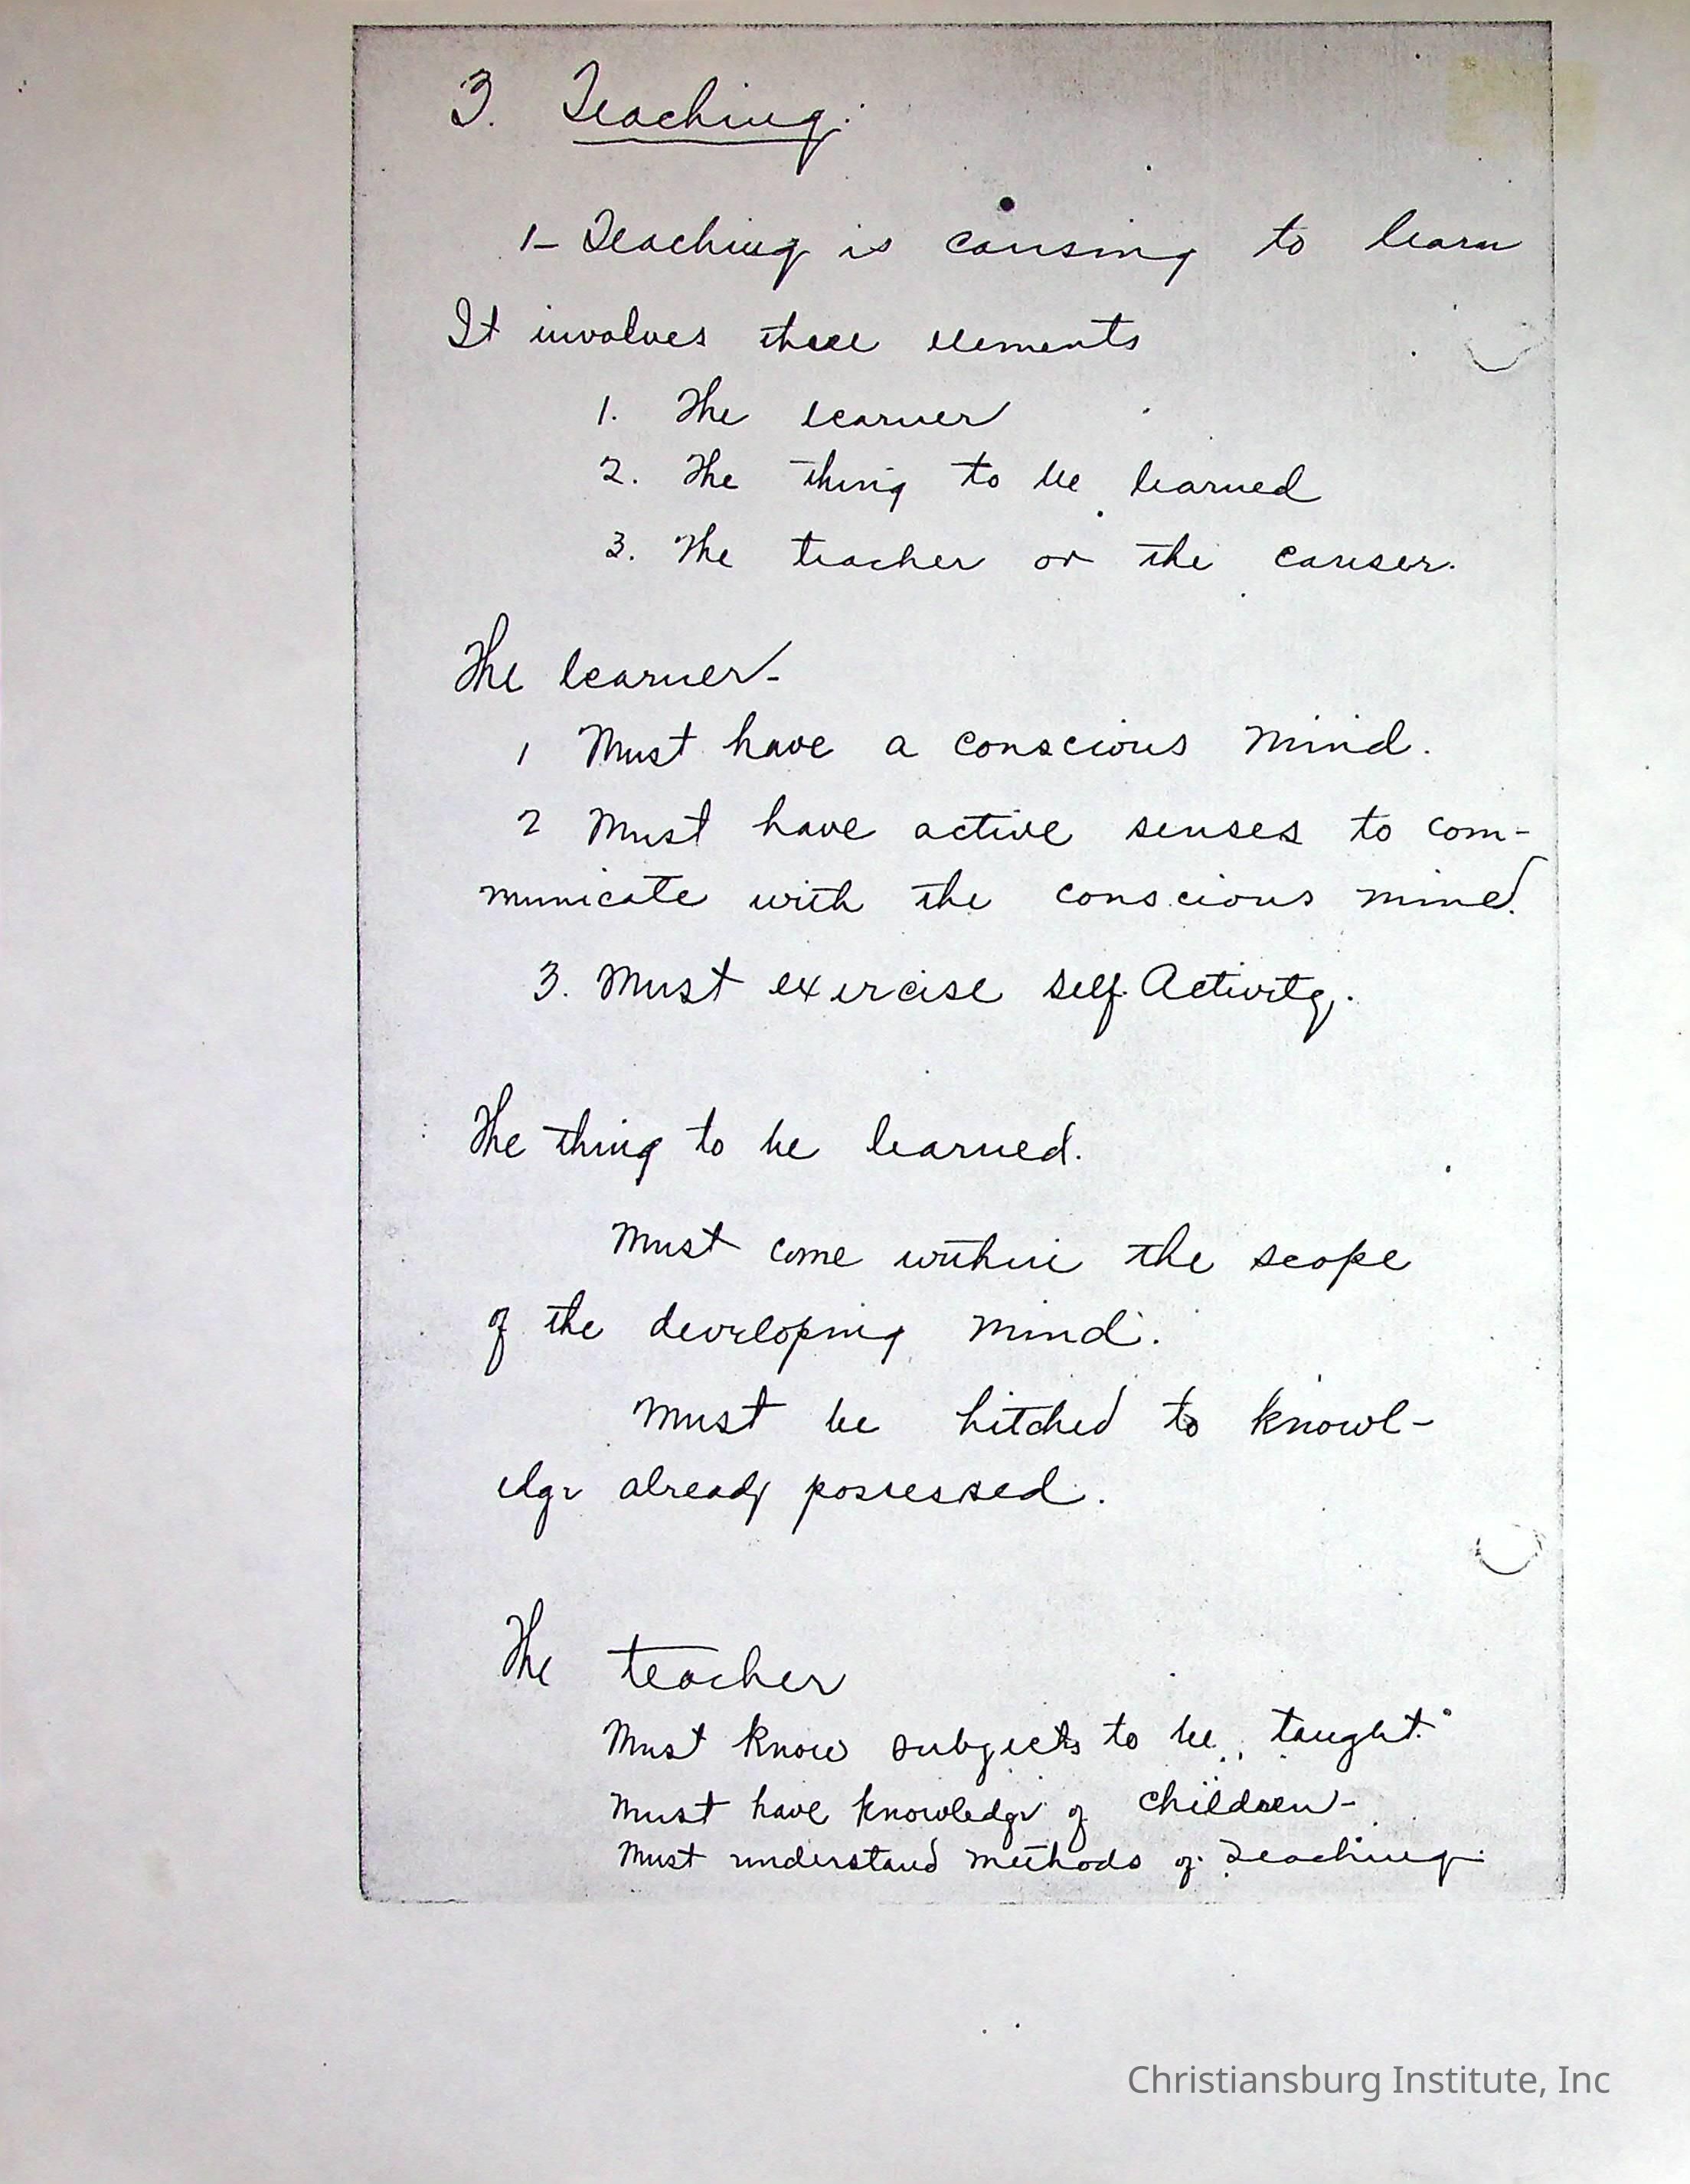 3. Teaching.
1- Teaching is causing to learn
It involves three elements
1. The learner
2. The thing to be learned
3. The teacher or the causer.
The learner-
1 Must have a conscious mind.
2 Must have active senses to com-
municate with the conscious mind.
3. Must exercise self-Activity.
The thing to be learned.
Must come within the scope
of the developing mind.
Must be hitched to knowl-
edge already possessed.
The teacher
Must know subjects to be taught.
Must have knowledge of children-
Must understand methods of Teaching.
Christiansburg Institute, Inc